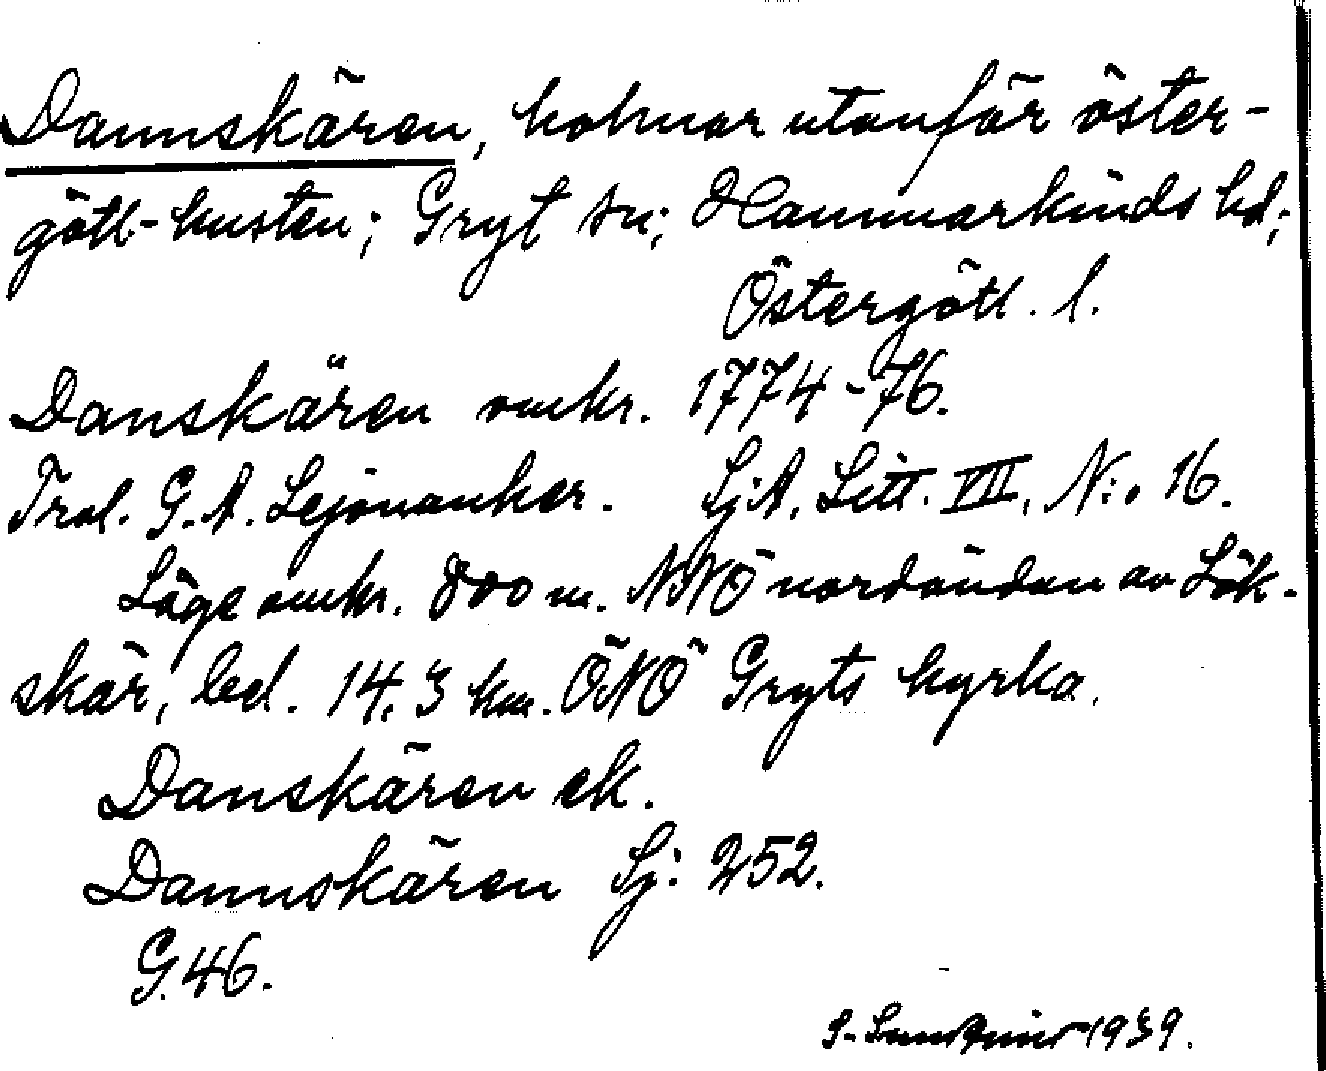 Dannskären, holmar utanför öster-
götl-kusten; Gryt sn; Hammarkinds hd;
Östergötl. l.
Danskären omkr. 1774-76.
Trol. G. A. Lejonanker. Sj: A. Litt. VII, N:o 16.
Läge omkr. 800 m. NNÖ nordändan av Lök-
skär, bel. 14.3 km. ÖNÖ Gryts kyrka.
Danskären ek.
Dannskären Sj: 252.
G. 46.
S. 1939.